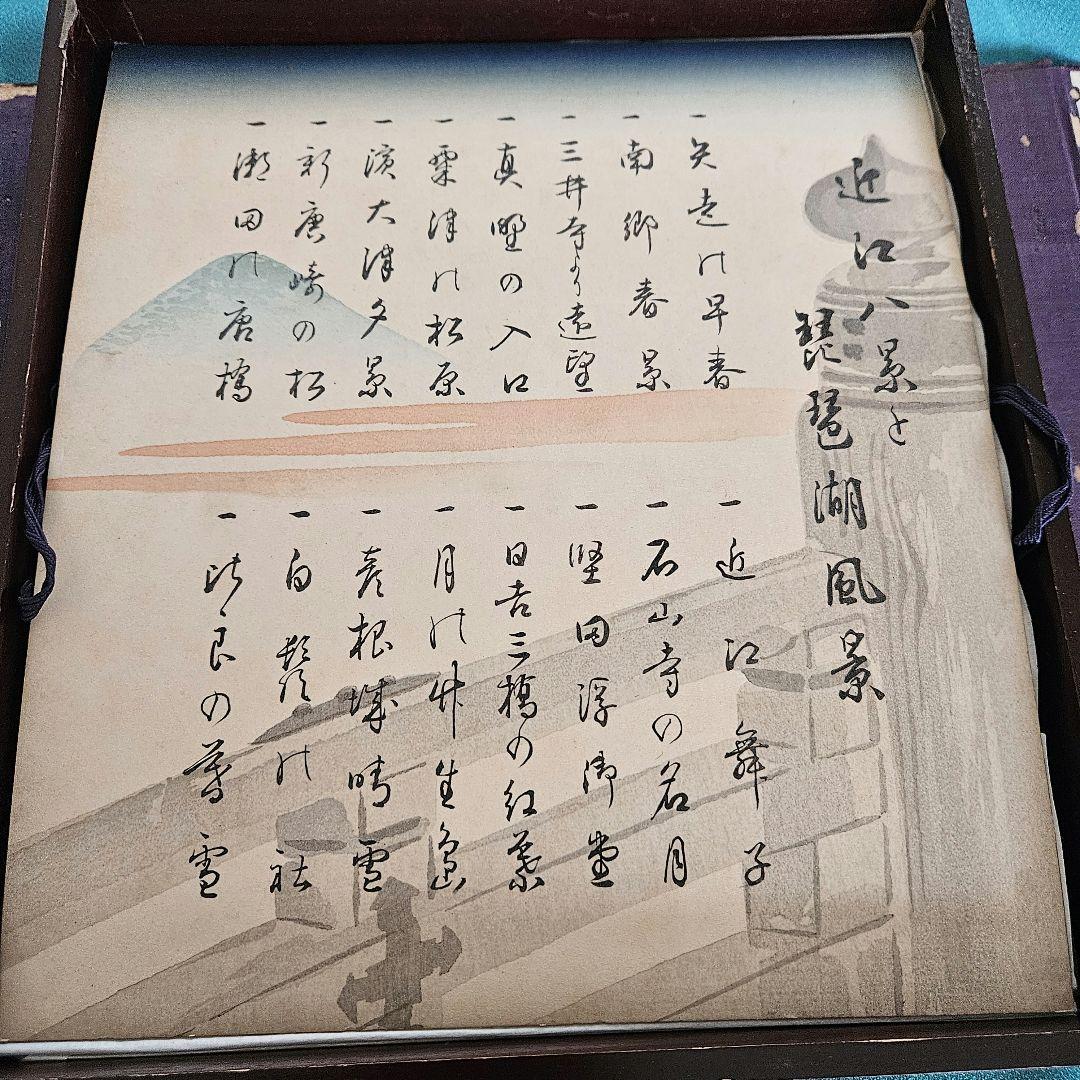 近江八景と
琵琶湖風景
一 矢走の早春
一 南郷春景
一 三井寺より遠望
一 真野の入口
一 粟津の松原
一 濱大津夕景
一 新唐崎の松
一 瀬田の唐橋
一 近江舞子
一 石山寺の名月
一 堅田浮御堂
一 日吉三橋の紅葉
一 月の竹生島
一 彦根城晴雪
一 白鬚の社
一 比良の暮雪